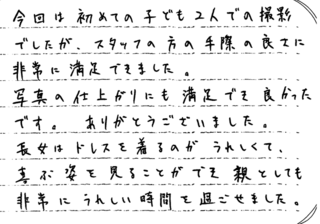 今回は初めての子ども2人での撮影
でしたが、スタッフの方の手際の良さに
非常に満足できました。
写真の仕上がりにも満足でき良かった
です。ありがとうございました。
長女はドレスを着るのがうれしくて、
喜ぶ姿を見ることができ親としても
非常にうれしい時間を過ごせました。